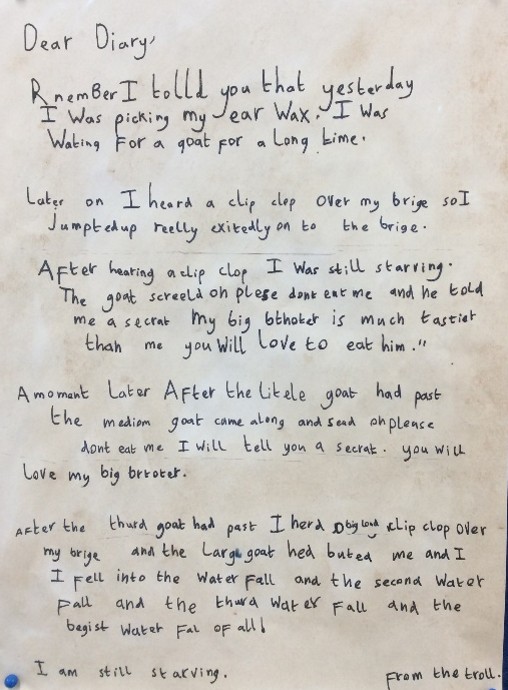 Dear Diary,
RnemBer I tolld you that yesterday
I Was picking my ear Wax. I Was
Wating For a goat for a Long time.
Later on I heard a clip clop over my brige so I
Jumptedup reelly exitedly on to the brige.
After hearing a clip clop I Was still starving.
The goat screeld oh plese dont eat me and he told
me a secrat My big bthoter is much tastier
than me you Will Love to eat him."
A moment Later After the Litele goat had past
the mediom goat came along and sead oh please
dont eat me I Will tell you a secrat. you will
Love my big brtoter.
After the thurd goat had past I herd big loud clip clop over
my brige and the Large goat hed buted me and I
I fell into the Water Fall and the second Water
Fall and the thurd Water Fall and the
begist Water Fal of all!
I am still starving.
From the troll.